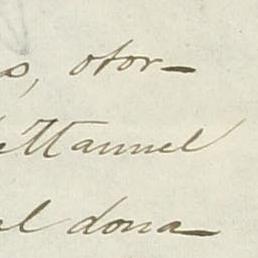 s, otor-
Mannel
al dona-